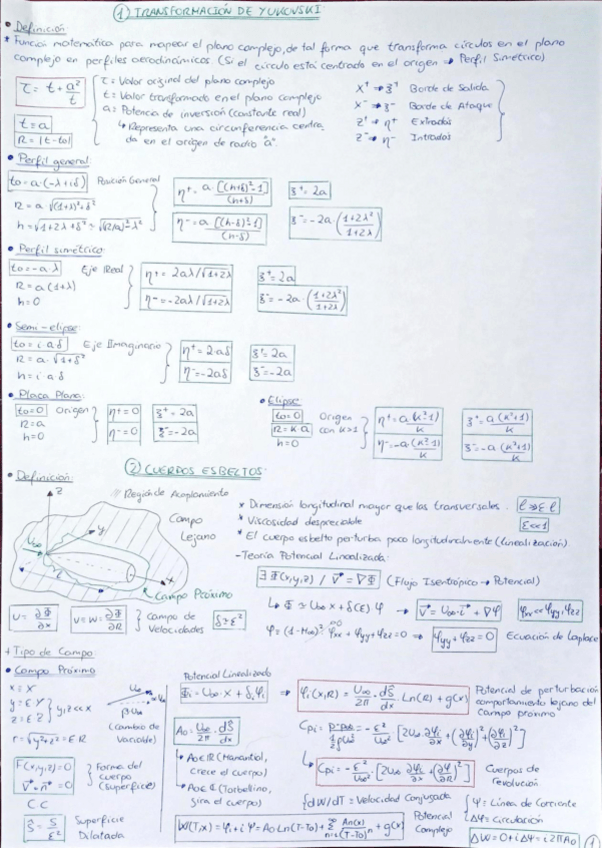 ① TRANSFORMACIÓN DE YUKOVSKI
• Definición
* Función matemática para mapear el plano complejo, de tal forma que transforma círculos en el plano
complejo en perfiles aerodinámicos. (Si el círculo está centrado en el origen ⇒ Perfil Simétrico)
τ = t + a²/t
τ = Valor original del plano complejo
t = Valor transformado en el plano complejo
a = Potencia de inversión (constante real)
↳ Representa una circunferencia centra
da en el origen de radio "a".
t = a
R = |t - to|
X⁺ → ξ⁺ Borde de Salida
X⁻ → ξ⁻ Borde de Ataque
Z⁺ → η⁺ Extradós
Z⁻ → η⁻ Intradós
• Perfil general:
to = a·(-λ + iδ) Posición General
R = a·√(1+λ)² + δ²
h = √1+2λ+δ² ÷ √(R/a)² - λ²
η⁺ = a·[(h+δ)² - 1]/(h+δ)
η⁻ = a [(h-δ)² - 1]/(h-δ)
ξ⁺ = 2a
ξ⁻ = -2a·(1+2λ²/1+2λ)
• Perfil simétrico:
to = -a·λ Eje Real
R = a(1+λ)
h = 0
η⁺ = 2aλ/√1+2λ
η⁻ = -2aλ/√1+2λ
ξ⁺ = 2a
ξ⁻ = -2a·(1+2λ²/1+2λ)
• Semi-elipse
to = i·aδ Eje Imaginario
R = a·√1+δ²
h = i·aδ
η⁺ = 2·aδ
η⁻ = -2aδ
ξ⁺ = 2a
ξ⁻ = -2a
• Placa Plana:
to = 0 Origen
R = a
h = 0
η⁺ = 0
η⁻ = 0
ξ⁺ = 2a
ξ⁻ = -2a
• Elipse
to = 0 Origen
R = K·a con K>1
h = 0
η⁺ = a(K²-1)/K
η⁻ = -a·(K²-1)/K
ξ⁺ = a(K²+1)/K
ξ⁻ = -a(K²+1)/K
② CUERPOS ESBELTOS:
• Definición:
Región de Acoplamiento
Campo
Lejano
Campo Próximo
z
y
x
U∞
* Dimensión longitudinal mayor que las transversales.
ε<<1
* Viscosidad despreciable
* El cuerpo esbelto perturba poco longitudinalmente (linealización)
- Teoría Potencial Linealizada:
∃ Φ(x,y,z) / V = ∇Φ (Flujo Isentrópico → Potencial)
↳ Φ ≃ U∞ x + δ(ε) φ → V = U∞·i + ∇φ φxx << φyy, φzz
φ = (1-M∞)²·φxx + φyy + φzz = 0 ⇒ φyy + φzz = 0 Ecuación de Laplace
U = ∂Φ/∂x
V = W = ∂Φ/∂R
Campo de
Velocidades
δ ≃ ε²
+ Tipo de Campo:
• Campo Próximo
x = X
y = εY
z = εZ
y, z << x
r = √y²+z² = εR
(Cambio de
Variable)
F(x,y,z) = 0
V·n = 0
Forma del
cuerpo
(superficie)
Ŝ = S/ε²
Superficie
Dilatada
Potencial Linealizado
Φi = U∞·x + δi φi ⇒ φi(x,R) = U∞/2π · dŜ/dx Ln(R) + g(x)
Potencial de perturbación
comportamiento lejano del
campo próximo
Ao = U∞/2π · dŜ/dx
Ao∈ℝ (Manantial,
crece el cuerpo)
(Torbellino,
gira el cuerpo)
Cpi = P-P∞/½ρU∞² = -ε²/U∞² [2U∞ ∂φi/∂x + (∂φi/∂y)² + (∂φi/∂z)²]
↳ Cpi = -ε²/U∞² [2U∞ ∂φi/∂x + (∂φi/∂R)²]
Cuerpos de
revolución
dW/dT = Velocidad Conjugada
ψ = Línea de Corriente
Δψ = Circulación
W(T,x) = φi + iψ = Ao Ln(T-To) + Σ An(x)/(T-To)ⁿ + g(x)
Potencial
Complejo
ΔW = 0 + iΔψ = i2πAo
1